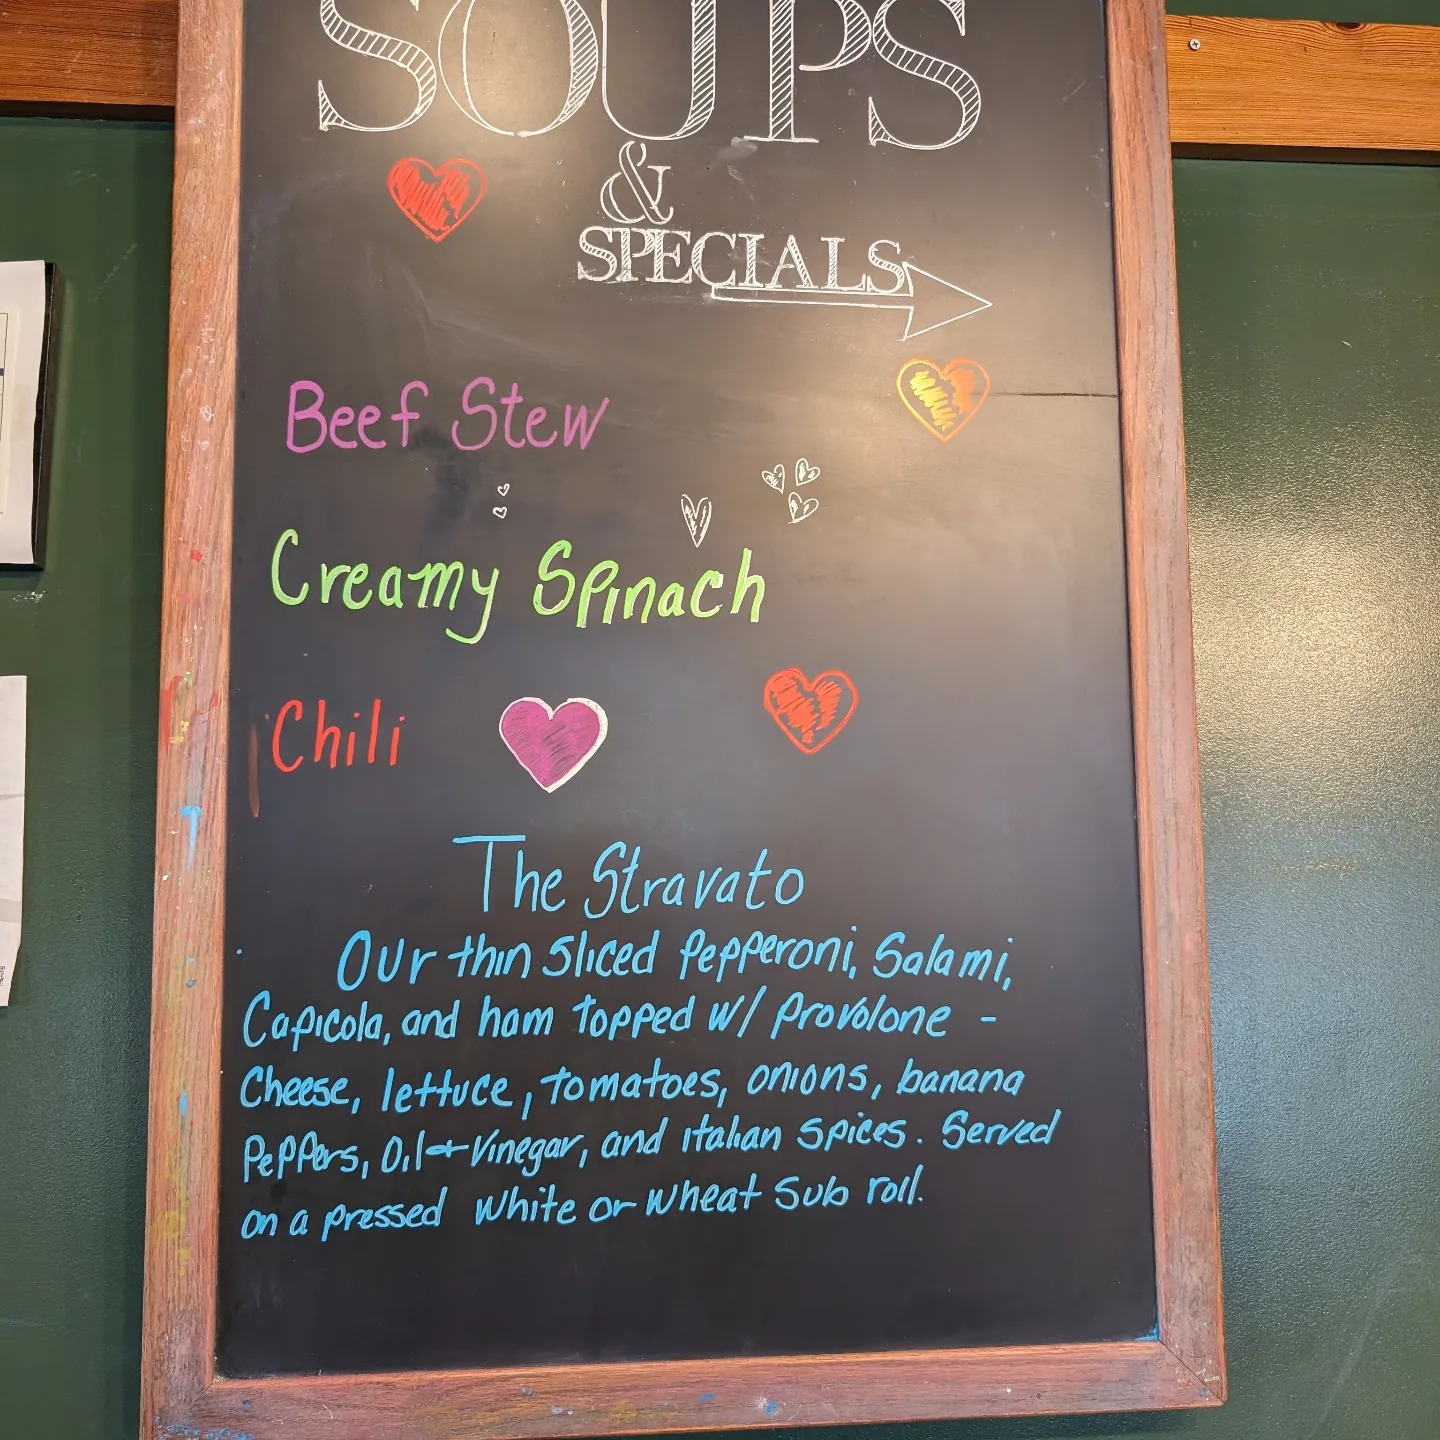 SOUPS
&
SPECIALS
Beef Stew
Creamy Spinach
Chili
The Stravato
Our thin sliced Pepperoni, Salami,
Capicola, and ham topped w/ provolone -
Cheese, lettuce, tomatoes, onions, banana
Peppers, Oil + Vinegar, and italian spices. Served
on a pressed white or wheat sub roll.